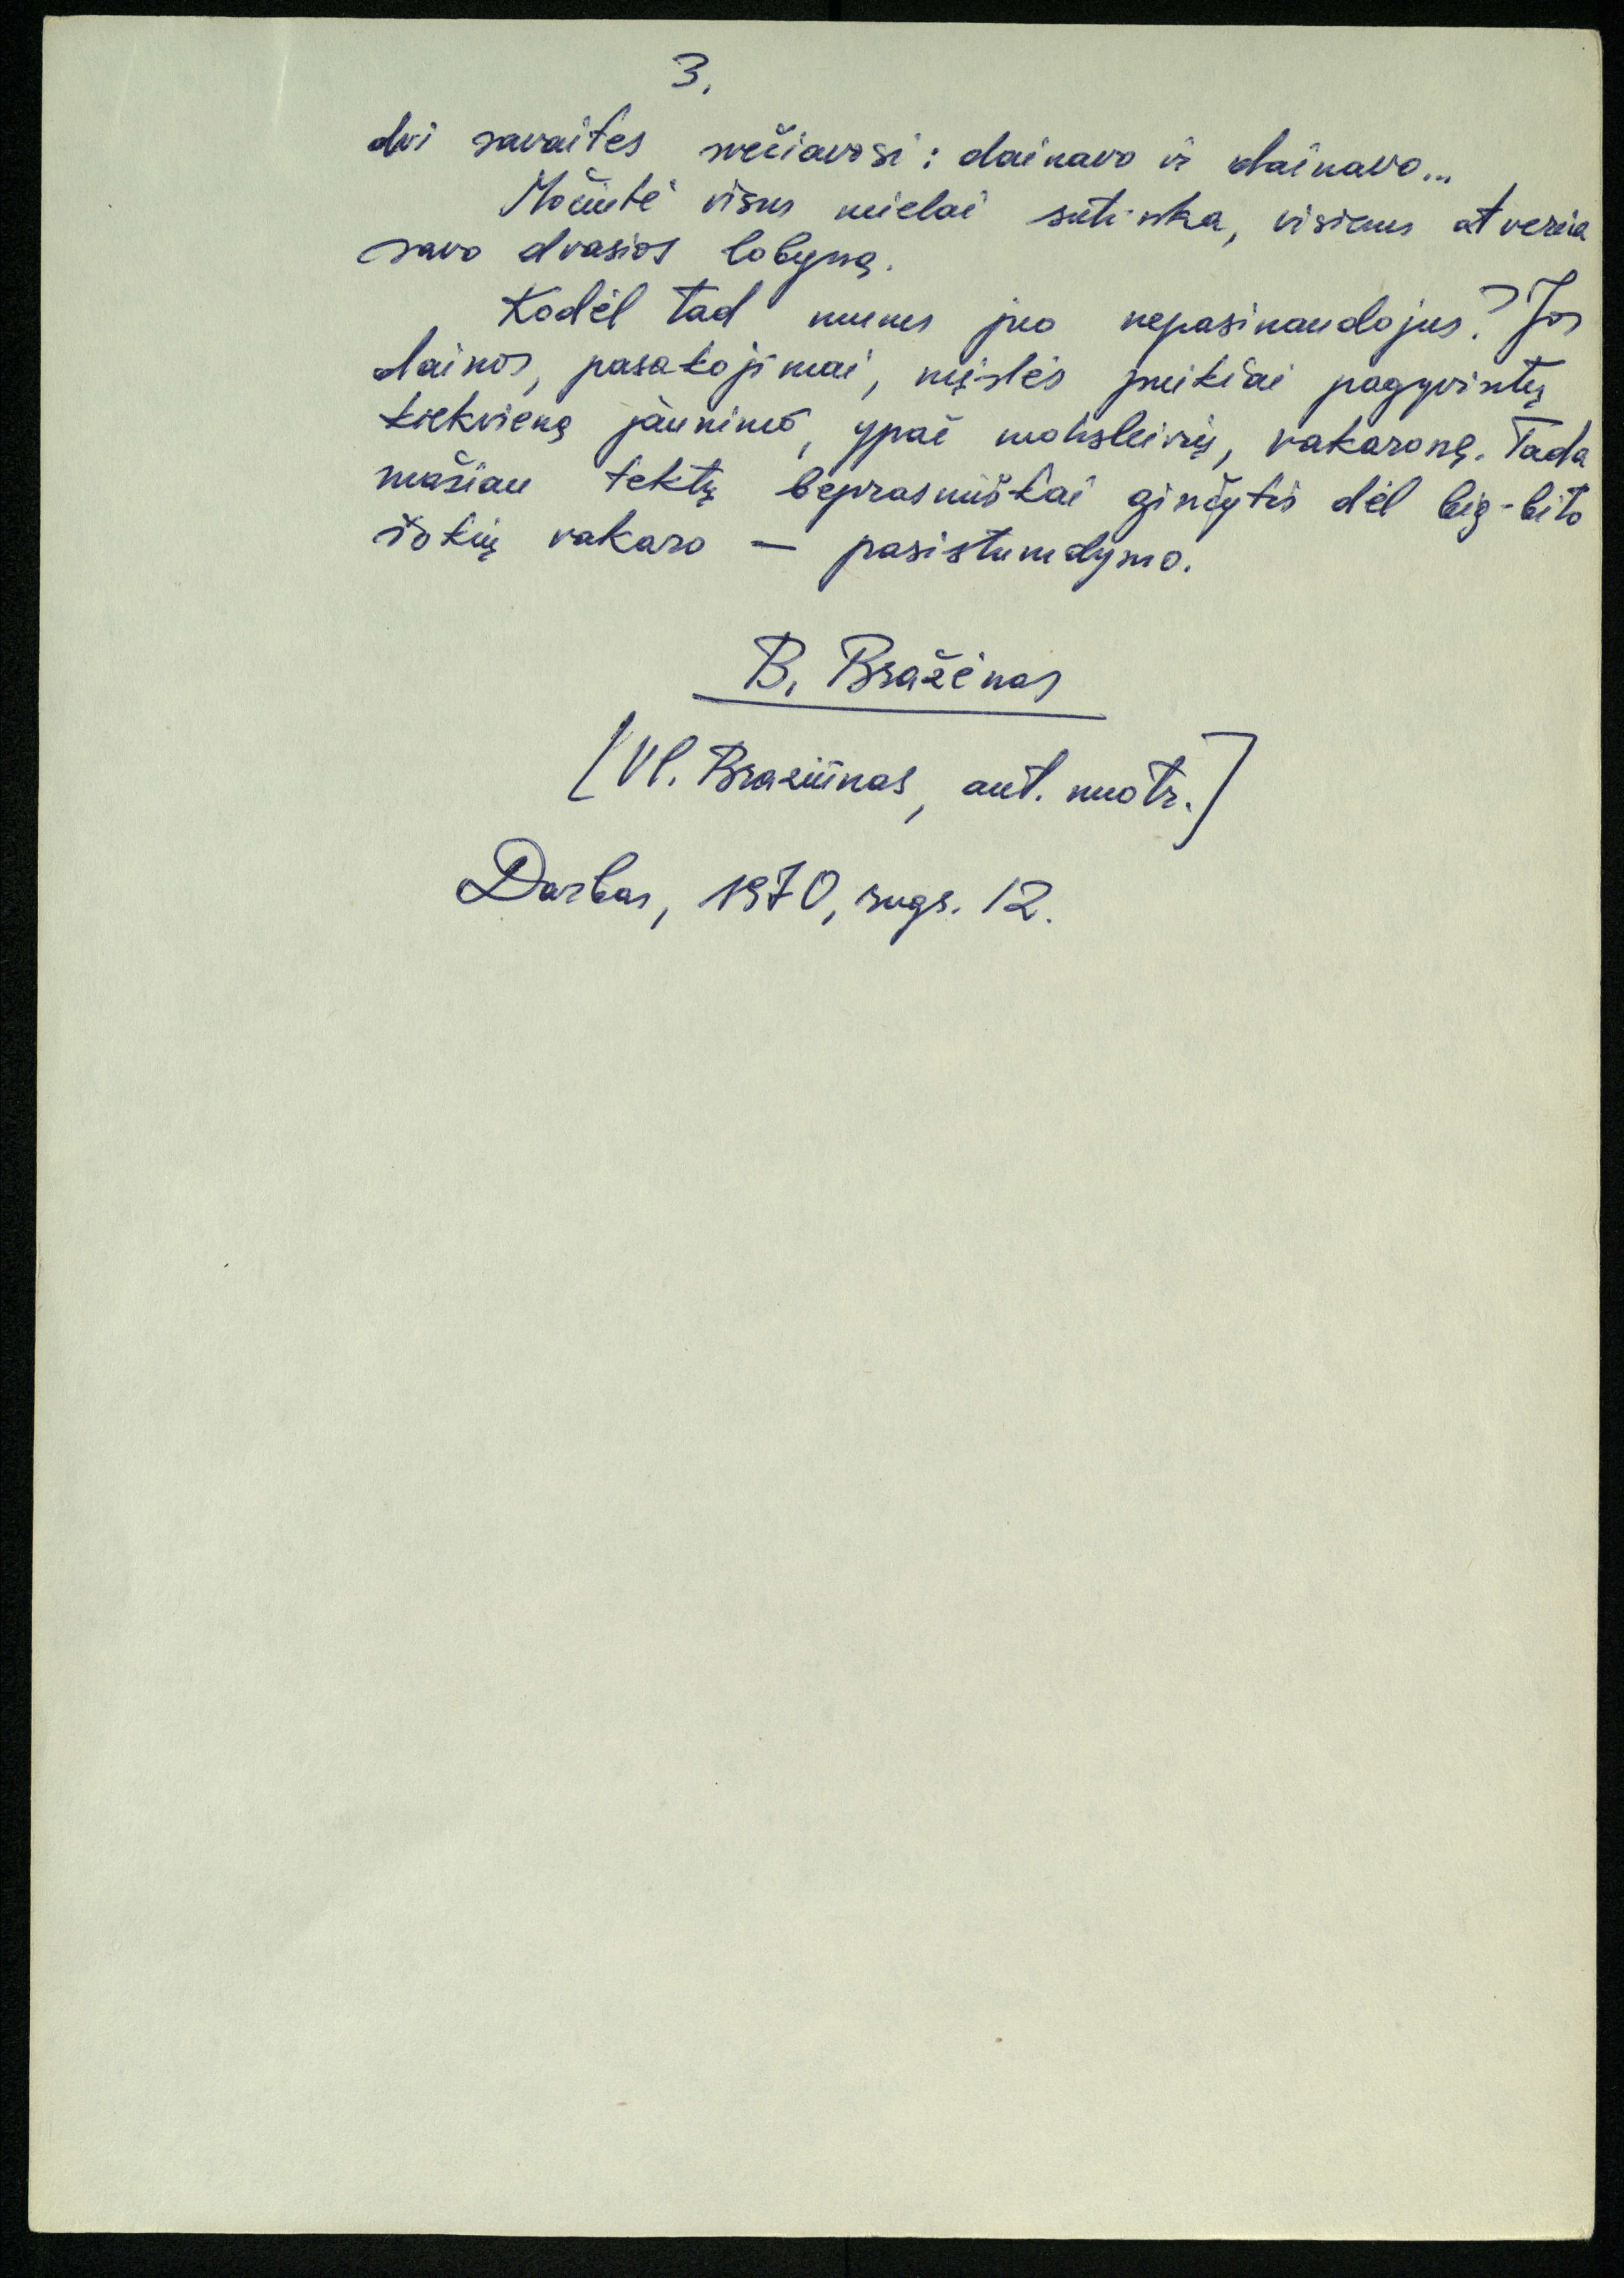 3.
dvi savaites svečiavosi: dainavo ir dainavo...
Močiutė visus mielai sutinka, visiems atveria
savo dvasios lobyną.
Kodėl tad mums juo nepasinaudojus? Jos
dainos, pasakojimai, mįslės puikiai pagyvintų
kiekvieną jaunimo, ypač moksleivių, vakaronę. Tada
mažiau tektų beprasmiškai ginčytis dėl big-bito
šokių vakaro — pasistumdymo.
B. Bražėnas
[Vl. Braziūnas, aut. nuotr.]
Darbas, 1970, rugs. 12.